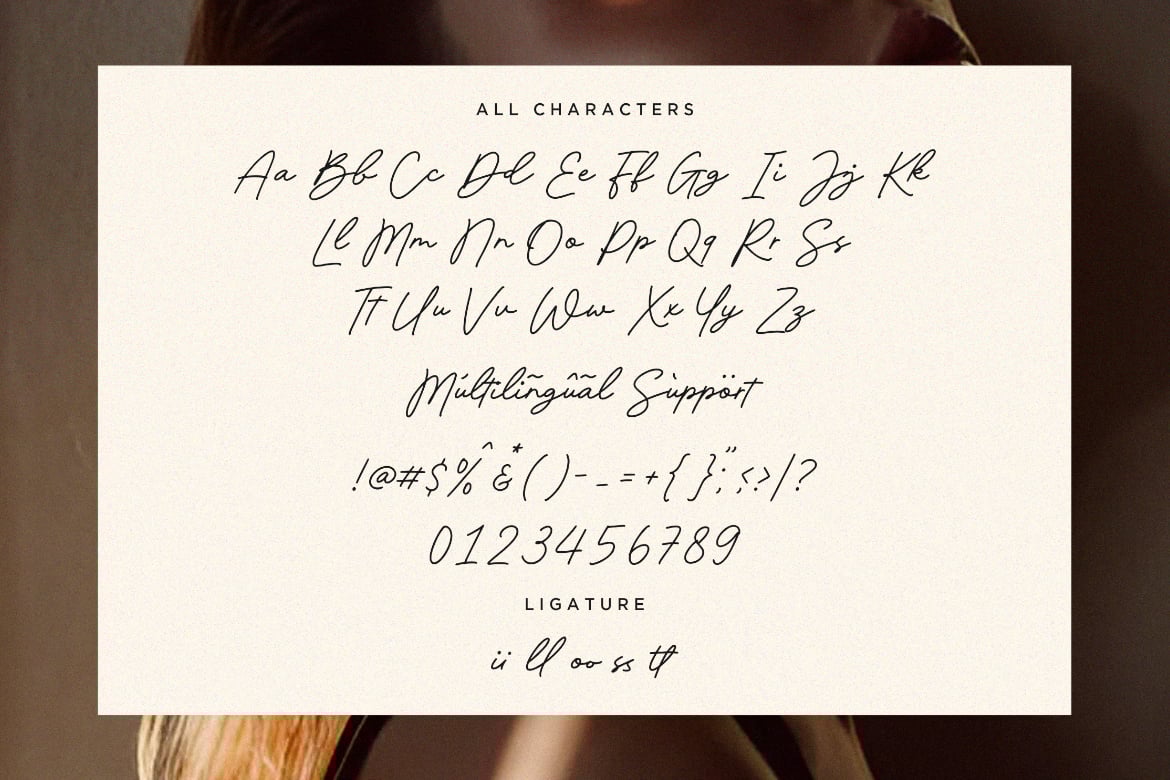 ALL CHARACTERS
Aa Bb Cc Dd Ee Ff Gg Ii Jj Kk
Ll Mm Nn Oo Pp Qq Rr Ss
Tt Uu Vv Ww Xx Yy Zz
Múltilĩngûãl Sùppört
!@#$%^&*()-_=+{}:";<>|?
0123456789
LIGATURE
ii ll oo ss tt